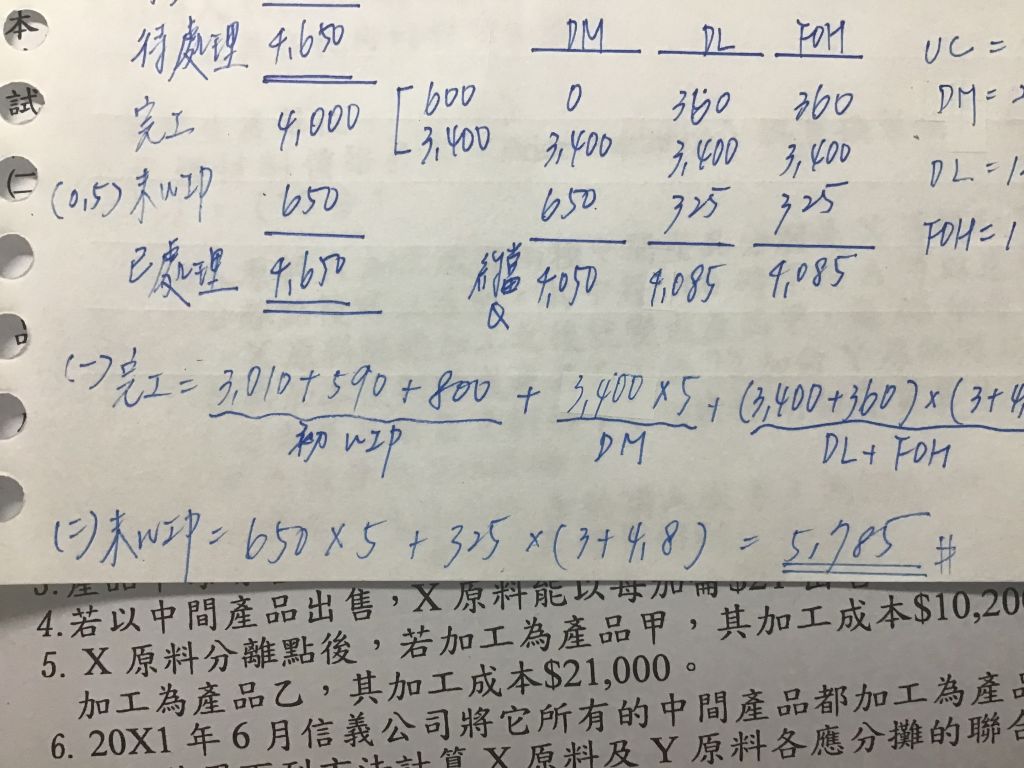 本
試
待處理 4,650 DM DL FOH UC =
完工 4,000 600 0 360 360 DM =
3,400 3,400 3,400 3,400
(0,5) 末WIP 650 650 325 325 DL = 1
已處理 4,650 約當Q 4,050 4,085 4,085 FOH = 1
(一) 完工 = 3,010 + 590 + 800 + 3,400 × 5 + (3,400 + 360) × (3 + 4,
初WIP DM DL + FOH
(二) 末WIP = 650 × 5 + 325 × (3 + 4,8) = 5,785 #
4. 若以中間產品出售，X 原料能以每加侖$21
5. X 原料分離點後，若加工為產品甲，其加工成本$10,20
加工為產品乙，其加工成本$21,000。
6. 20X1 年 6 月信義公司將它所有的中間產品都加工為產品
方法計算 X 原料及 Y 原料各應分攤的聯合